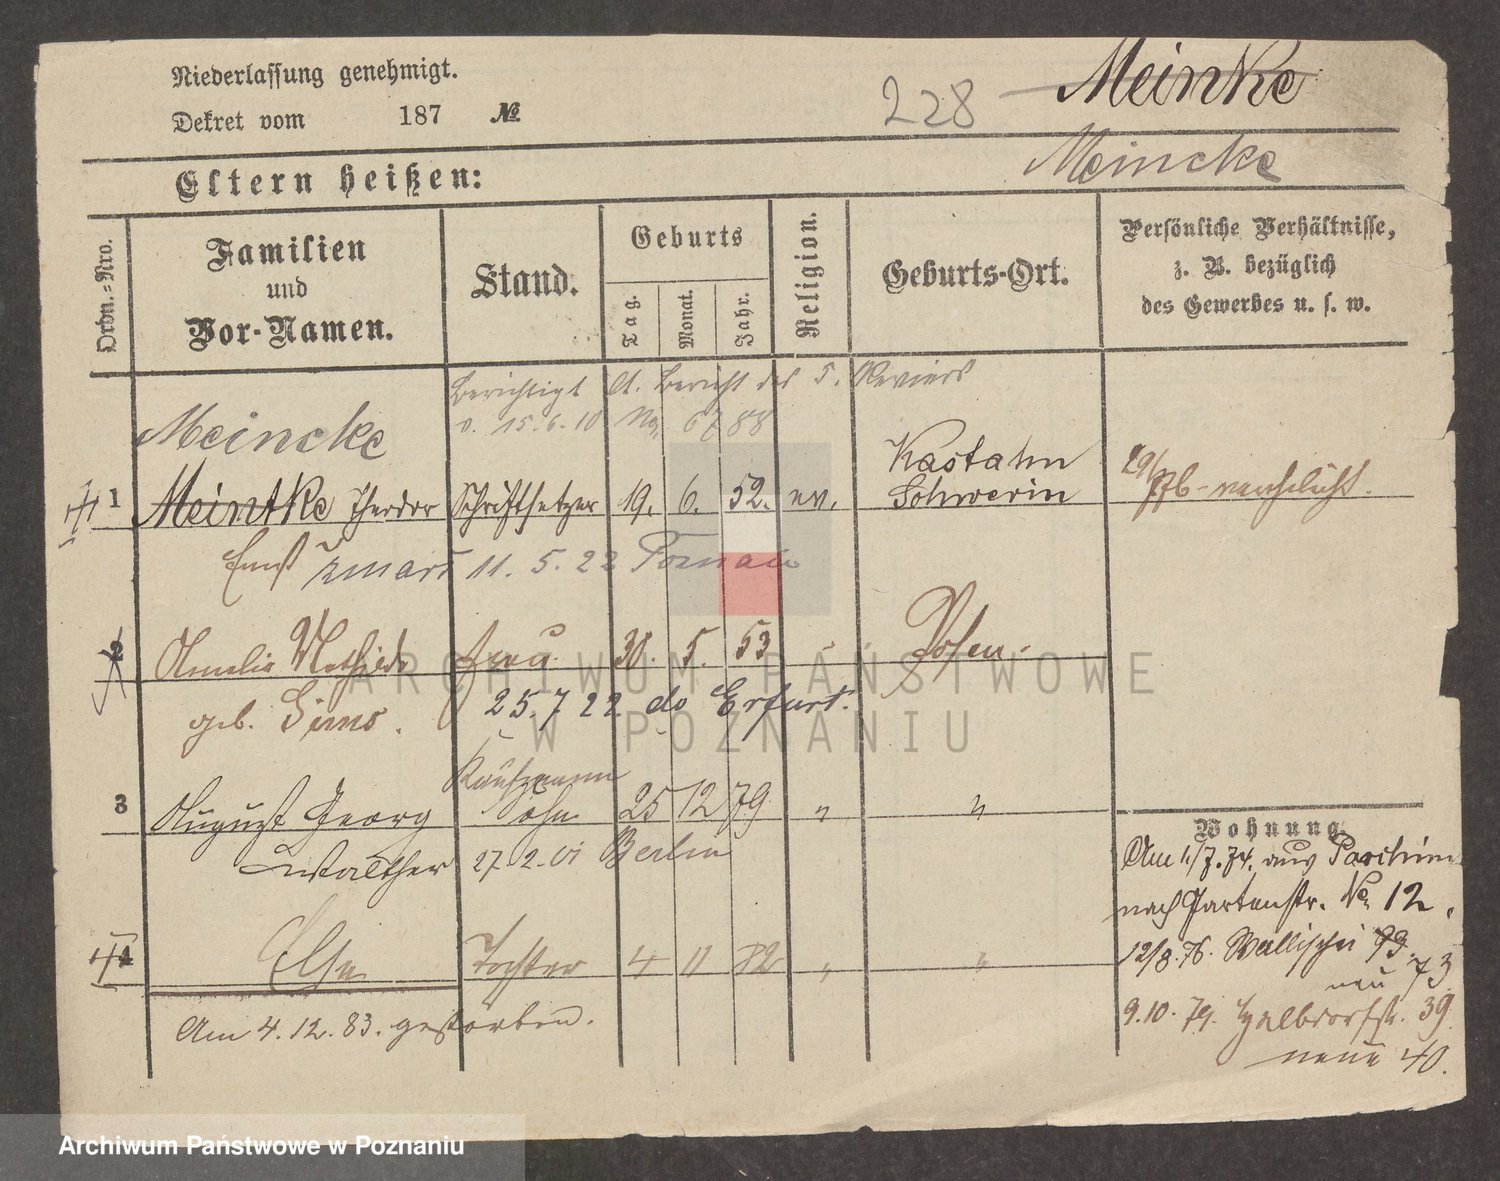 Niederlassung genehmigt.
Dekret vom 187 №
228
Meinke
Meincke
Eltern heißen:
Ordn.-Nro.
Familien
und
Vor-Namen.
Stand.
Geburts
Tag.
Monat.
Jahr.
Religion.
Geburts-Ort.
Persönliche Verhältnisse,
z. B. bezüglich
des Gewerbes u. s. w.
Berichtigt lt. Bericht des 5. Reviers
v. 15.6.10 No. 6788
Meincke
1 Meintke Theodor Schriftsetzer 19. 6. 52. ev. Kastahn
Schwerin
Ernst zmarł 11. 5. 22 Poznań
2 Amalie Mathilde Frau 30. 5. 53 " Posen.
geb. 25. 7. 22 do Erfurt.
Kaufmann
3 August Georg Sohn 25 12 79 " "
Walther 27. 2. 01 Berlin
4 Else Tochter 4 11 82 " "
Am 4. 12. 83. gestorben.
Wohnung.
Am 1/7. 74. aus Parchim
nach Gartenstr. No. 12.
12/8. 76. Wallischei 99.
neu 73
9. 10. 79. Halbdorfstr. 39
neue 40.
ARCHIWUM PAŃSTWOWE
W POZNANIU
Archiwum Państwowe w Poznaniu